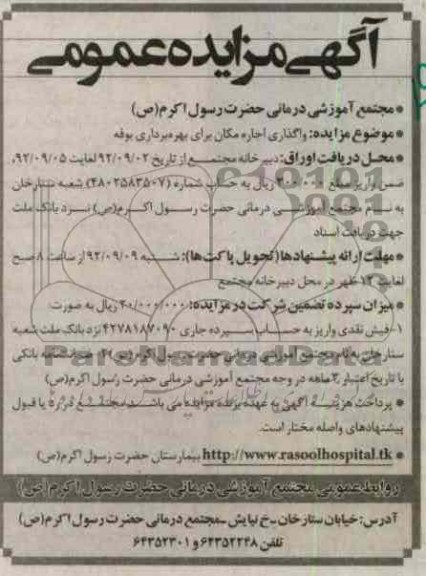 آگهی مزایده عمومی
* مجتمع آموزشی درمانی حضرت رسول اکرم(ص)
* موضوع مزایده: واگذاری اجاره مکان برای بهره‌برداری بوفه
* محل دریافت اوراق: دبیرخانه مجتمع از تاریخ ۹۲/۰۹/۰۲ لغایت ۹۲/۰۹/۰۵،
ضمن واریز مبلغ ۲۰۰/۰۰۰ ریال به حساب شماره (۴۸۰۲۵۸۳۵۰۷) شعبه ستارخان
به نام مجتمع آموزشی درمانی حضرت رسول اکرم(ص) نزد بانک ملت
جهت دریافت اسناد
* مهلت ارائه پیشنهادها (تحویل پاکت‌ها): شنبه ۹۲/۰۹/۰۹ از ساعت ۸ صبح
لغایت ۱۲ ظهر در محل دبیرخانه مجتمع
* میزان سپرده تضمین شرکت در مزایده: ۲۰/۰۰۰/۰۰۰ ریال به صورت:
۱-فیش نقدی واریز به حساب سپرده جاری ۴۲۷۸۱۸۷۰۹۰ نزد بانک ملت شعبه
ستارخان به نام مجتمع آموزشی درمانی حضرت رسول اکرم(ص) ۲- ضمانتنامه بانکی
با تاریخ اعتبار ۳ ماهه در وجه مجتمع آموزشی درمانی حضرت رسول اکرم(ص)
* پرداخت هزینه آگهی به عهده برنده مزایده می باشد مجتمع در رد یا قبول
پیشنهادهای واصله مختار است.
* http://www.rasoolhospital.tk بیمارستان حضرت رسول اکرم(ص)
روابط عمومی مجتمع آموزشی درمانی حضرت رسول اکرم(ص)
آدرس: خیابان ستارخان-خ نیایش-مجتمع درمانی حضرت رسول اکرم(ص)
تلفن ۶۴۳۵۲۲۴۸ و ۶۴۳۵۲۳۰۱
ParsNamadData